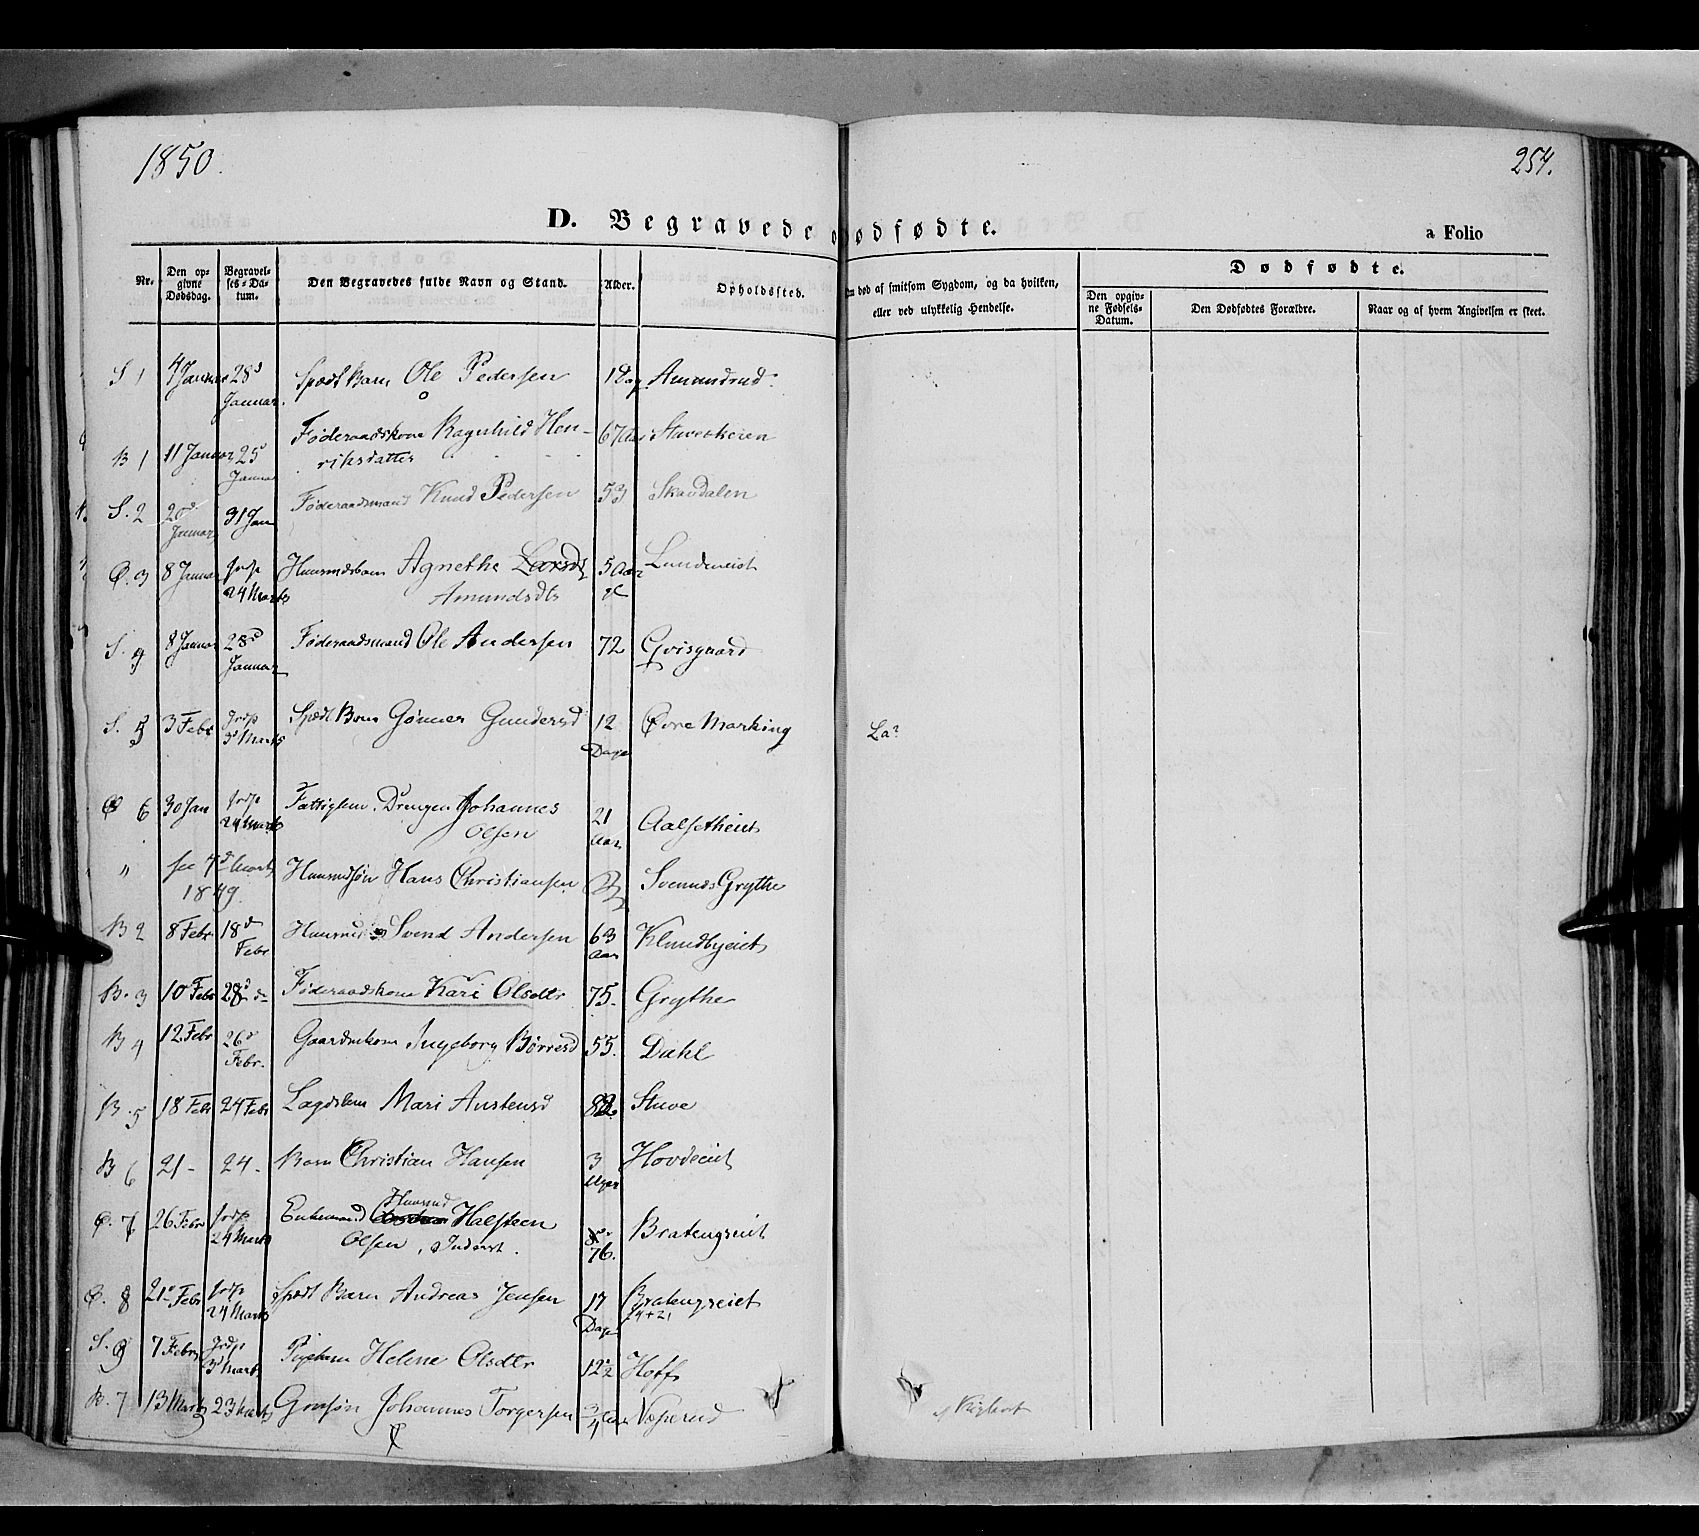 1850.
254.
D. Begravede o dødfødte.
a Folio
Nr.
Den op-
givne
Dødsdag.
Begravel-
ses-Da-
tum.
Den Begravedes fulde Navn og Stand.
Alder.
Opholdssted.
død af smitsom Sygdom, og da hvilken,
eller ved ulykkelig Hendelse.
Dødfødte.
Den opgiv-
ne Fødsels-
Datum.
Den Dødfødtes Forældre.
Naar og af hvem Angivelsen er skeet.
S 1 4 Januar 28d Januar. Spædt Barn Ole Pedersen 1 Dag Amundrud.
B 1 11 Januar 25d Janua Føderaadskone Ragnhild Hen-
riksdatter 67 Aar Stuveskeien
S. 2 20d Januar 31 Jan Føderaadsmand Knud Pedersen 53 Skavdalen
Ø. 3 8 Januar 24 Marts Huusmdsbarn Agnethe Larsdt
Amundsdtr 5 Aar Lundeneiet
S. 8 Januar 28d Januar Føderaadsmand Ole Andersen 72 Qvisgaard
S. 5 3 Febr 3d Marts Spædt Barn Gønner Gundersd 12 Dage Øvre Marking La?
Ø 6 30 Jan 24 Marts Fattiglem Drengen Johannes
Olsen 21 Aar Aalsetheiet
" 7d Marts
1849. Huusmdsøn Hans Christiansen Svennds Grythe
B 2 8 Febr 18d Febr Svend Andersen 63 Aar Klundbyeiet
B. 3 10 Febr 28d Føderaadskone Kari Olsdtr 75. Grythe
B 4 12. Febr 26d Febr. Gaardmkone Ingeborg Børresd 55. Dahl
B. 5 18 Febr 24 Febr Lægdslem Mari Austensd 82 Stuve
B 6 21 - 24 - Barn Christian Hansen 3 Uger Hovdeeiet
Ø. 7 26 Febr 24 Marts Enkemand Huusmd Halsteen
Olsen, Inderst. 76. Bratengseiet
Ø. 8 21d Febr 24 Marts Spædt Barn Andreas Jensen 17 Dage Bratengseiet
S. 9 7 Febr 3d Marts Pigebarn Helene Olsdtr 12 1/2 Hoff
B. 7 13 Marts 23 Marts Grmsøn Johannes Torgersen 3/4 Aar Næperud